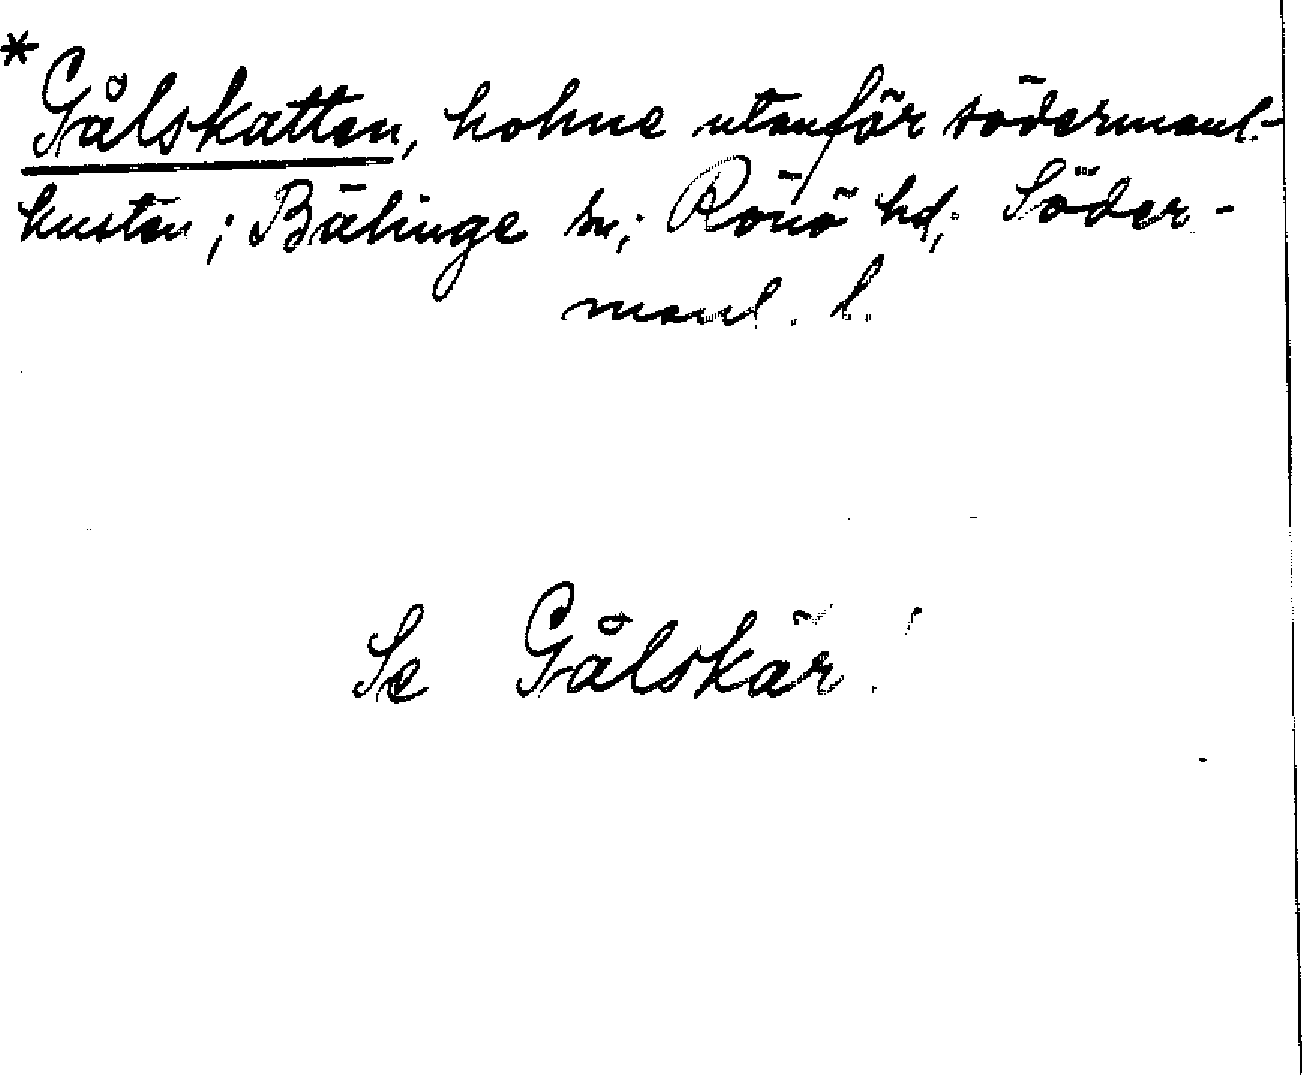 * Gålskatten, holme utanför södermanl.-
kusten; Bälinge sn; Rönö hd; Söder-
manl. l.
Se Gålskär!